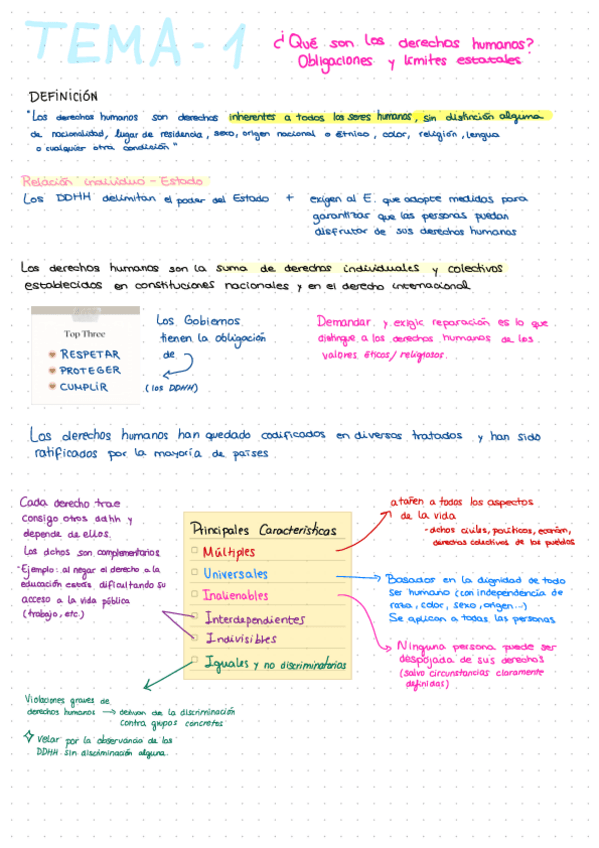 TEMA-1
¿Qué son los derechos humanos?
Obligaciones y límites estatales
DEFINICIÓN
"Los derechos humanos son derechos inherentes a todos los seres humanos, sin distinción alguna
de nacionalidad, lugar de residencia, sexo, origen nacional o étnico, color, religión, lengua
o cualquier otra condición"
Relación individuo - Estado
Los DDHH delimitan el poder del Estado + exigen al E. que adopte medidas para
garantizar que las personas puedan
disfrutar de sus derechos humanos
Los derechos humanos son la suma de derechos individuales y colectivos
establecidos en constituciones nacionales y en el derecho internacional
Top Three
RESPETAR
PROTEGER
CUMPLIR
Los Gobiernos
tienen la obligación
de
(los DDHH)
Demandar y exigir reparación es lo que
distingue a los derechos humanos de los
valores éticos/religiosos.
Los derechos humanos han quedado codificados en diversos tratados y han sido
ratificados por la mayoría de países
Cada derecho trae
consigo otros ddhh y
depende de ellos.
Los dchos son complementarios
-Ejemplo: al negar el derecho a la
educación estás dificultando su
acceso a la vida pública
(trabajo, etc.)
Principales Características
Múltiples
Universales
Inalienables
Interdependientes
Indivisibles
Iguales y no discriminatorios
atañen a todos los aspectos
de la vida
- dchos civiles, políticos, econom,
derechos colectivos de los pueblos
Basados en la dignidad de todo
ser humano (con independencia de
raza, color, sexo, origen...)
Se aplican a todas las personas
Ninguna persona puede ser
despojada de sus derechos
(salvo circunstancias claramente
definidas)
Violaciones graves de
derechos humanos → derivan de la discriminación
contra grupos concretos
velar por la observancia de los
DDHH sin discriminación alguna.